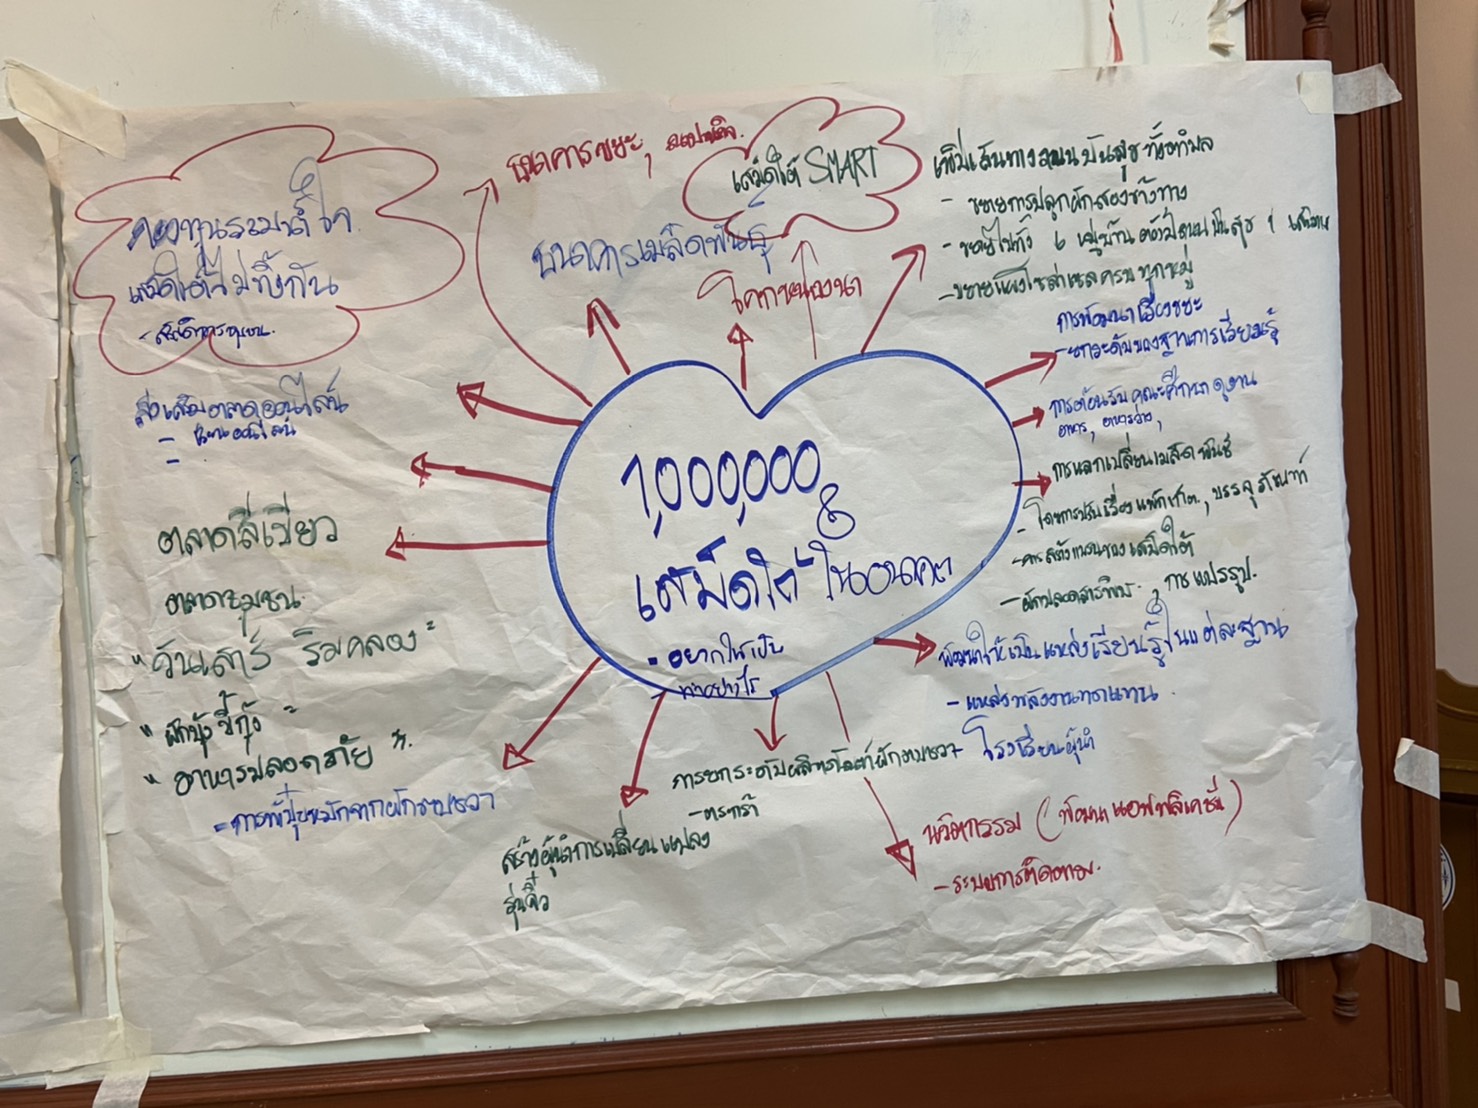 ธนาคารขยะ,
เสม็ดใต้ SMART
ธนาคารเมล็ดพันธุ์
โคกหนองนา
กองทุนระมาด์ ขา
เสม็ดใต้ไม่ทิ้งกัน
ส่งเสริมตลาดออนไลน์
ตลาดสีเขียว
ตลาดชุมชน
"วันเสาร์ ริมคลอง"
"ผักบุ้งขี้กุ้ง"
"อาหารปลอดภัย".
- การทำปุ๋ยหมักจากผักตบชวา
1,000,000
เสม็ดใต้ในอนาคต
- อยากให้เป็น
อย่างไร
เส้นทางถนนปันสุขทั้งตำบล
- ขยายการปลูกผักสองข้างทาง
- ขยายไปทั้ง 6 หมู่บ้าน ถนนปันสุข 1
- ขยายแผงโซล่าเซลครบทุกหมู่
การพัฒนาเรื่องขยะ
- ยกระดับของฐานการเรียนรู้
การต้อนรับคณะศึกษาดูงาน
อาหาร, อาหารว่าง,
การแลกเปลี่ยนเมล็ดพันธุ์
- โดยการปรับเรื่องแพ็กเกจ, บรรจุภัณฑ์
- การสร้างแบรนของเสม็ดใต้
- ผักปลอดสารพิษ, การแปรรูป.
พัฒนาให้เป็นแหล่งเรียนรู้ในแต่ละฐาน
- แหล่งพลังงานทดแทน
โรงเรียนผู้นำ
การยกระดับผลิตภัณฑ์ผักตบชวา
- ตระกร้า
สร้างผู้นำการเปลี่ยนแปลง
รุ่นจิ๋ว
นวัตกรรม (พัฒนาแอพพลิเคชั่น)
- ระบบการติดตาม.